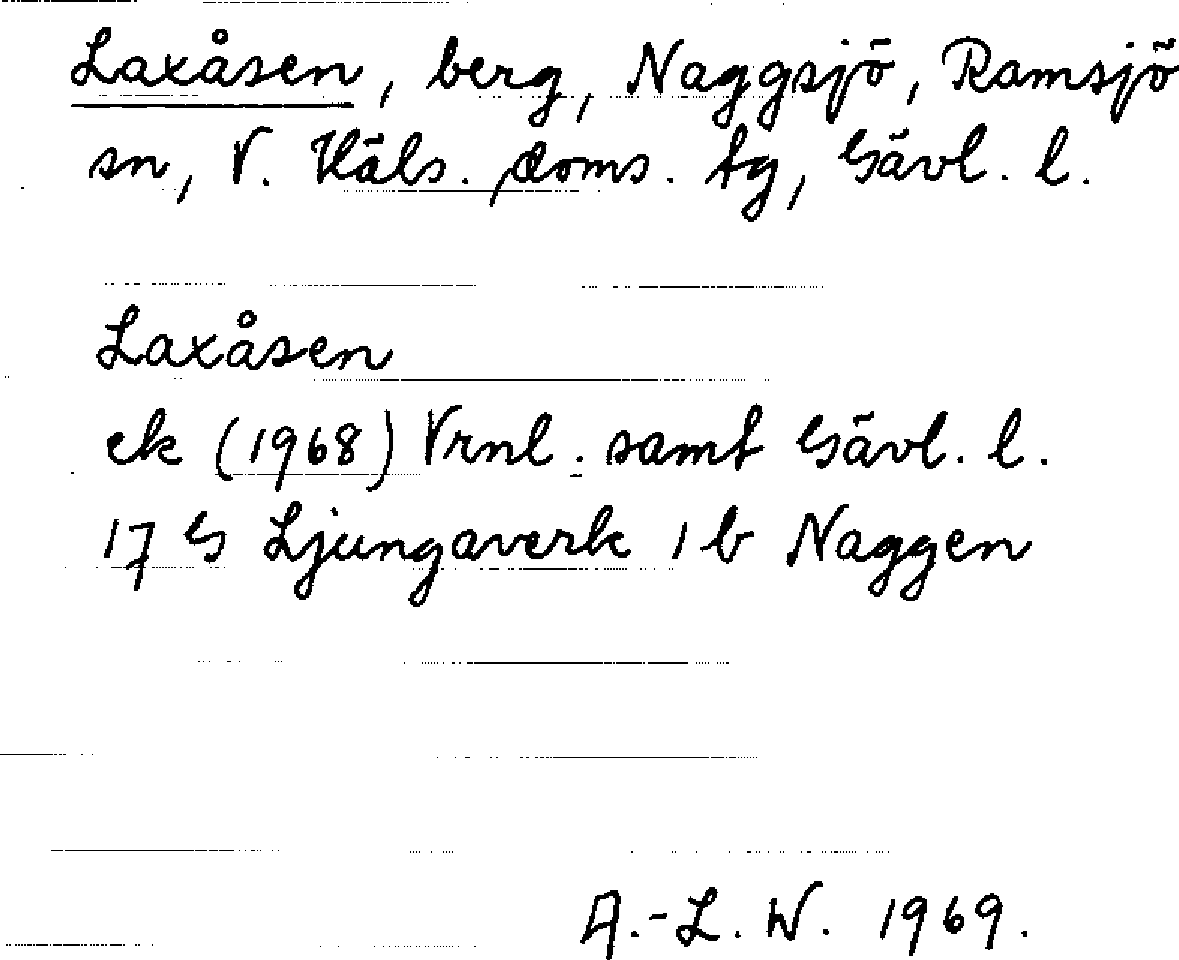 Laxåsen, berg, Naggsjö, Ramsjö
sn, V. Häls. doms. tg, Gävl. l.
Laxåsen
ek (1968) Vrnl. samt Gävl. l.
17 G Ljungaverk 1 b Naggen
A.-L. W. 1969.